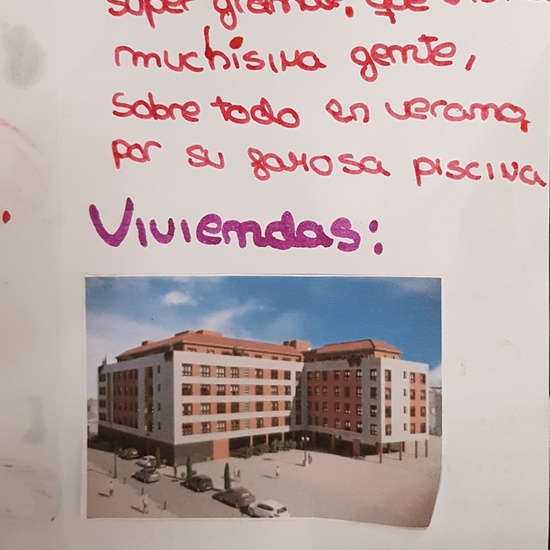 super grande, que
muchisima gente,
sobre todo en verano,
por su famosa piscina
Viviendas: